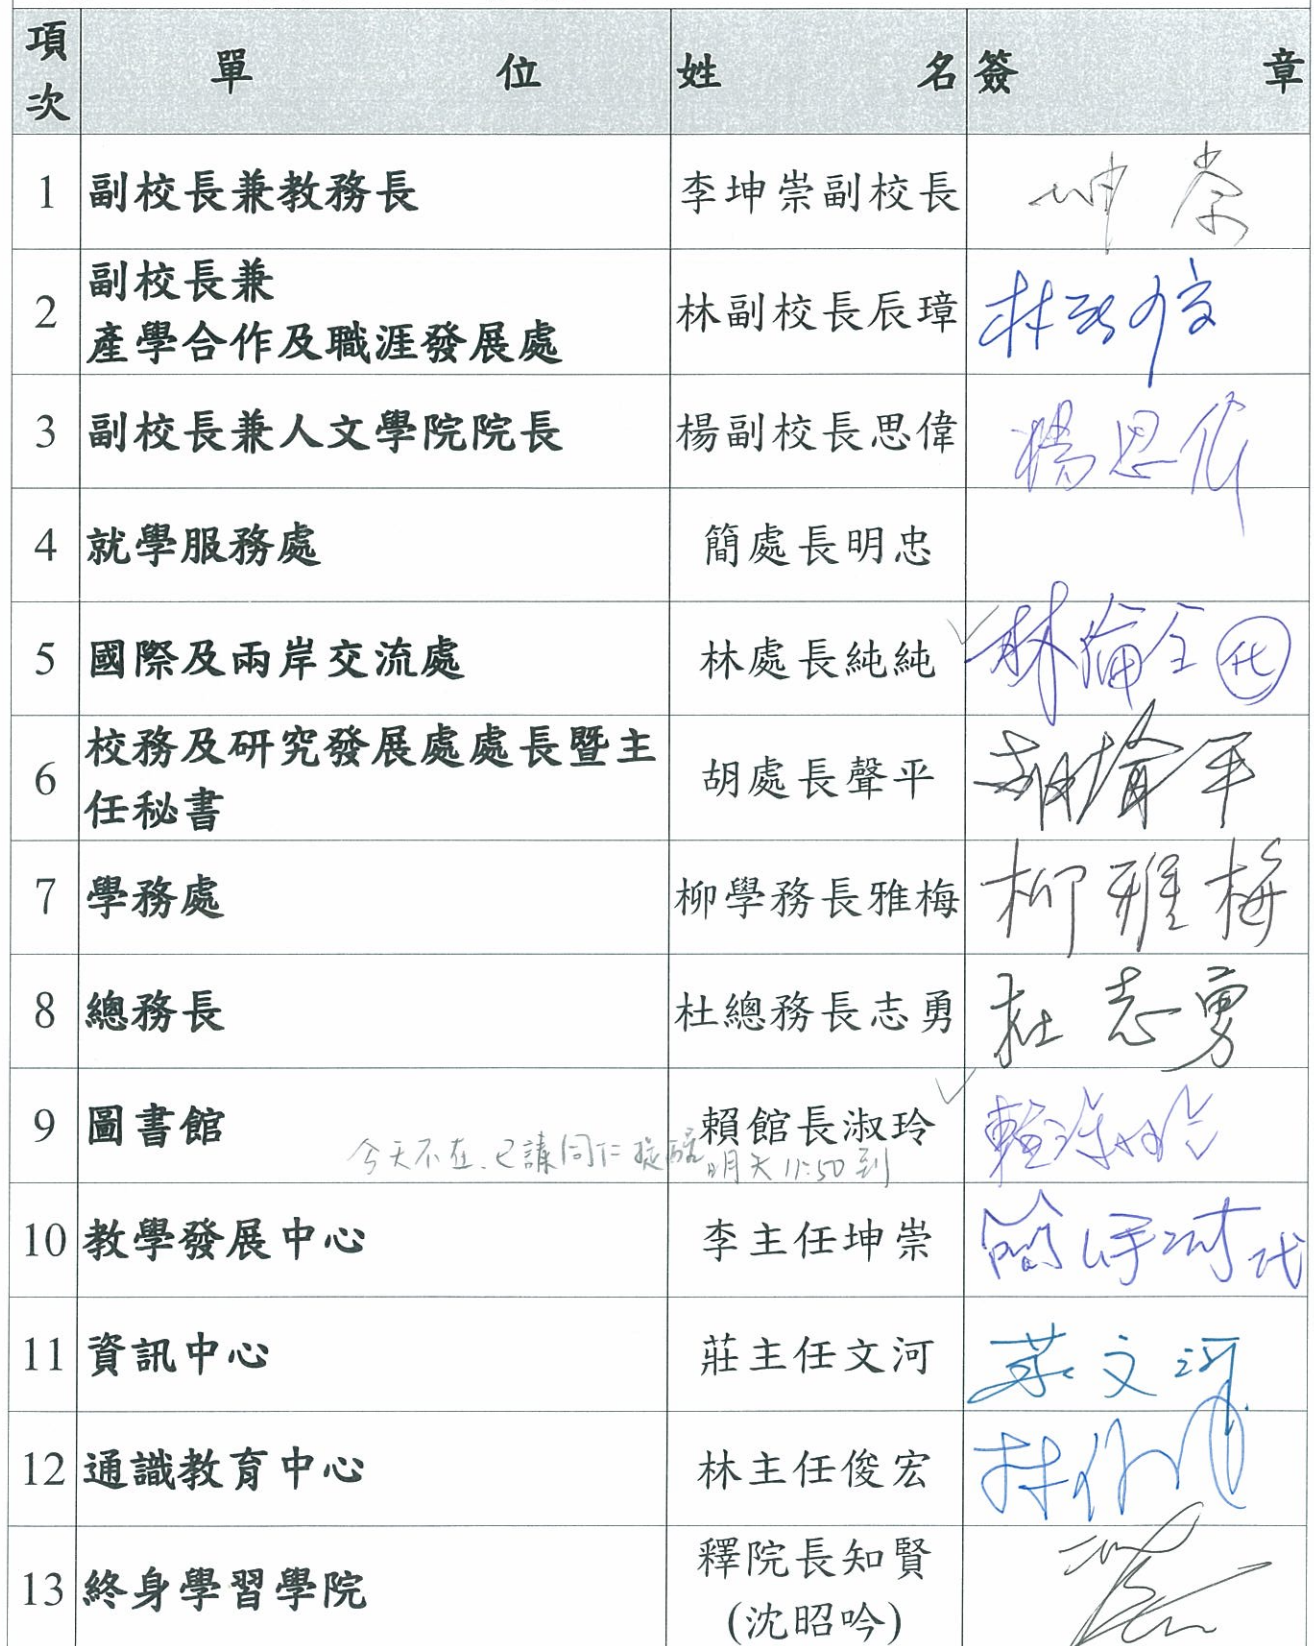 項次 單位 姓名 簽章
1 副校長兼教務長 李坤崇副校長 坤崇
2 副校長兼
產學合作及職涯發展處 林副校長辰璋
3 副校長兼人文學院院長 楊副校長思偉 楊思偉
4 就學服務處 簡處長明忠
5 國際及兩岸交流處 林處長純純 林倫全 代
6 校務及研究發展處處長暨主
任秘書 胡處長聲平
7 學務處 柳學務長雅梅 柳雅梅
8 總務長 杜總務長志勇 杜志勇
9 圖書館 賴館長淑玲 賴淑玲
今天不在、已請同仁提醒明天11:50到
10 教學發展中心 李主任坤崇 代
11 資訊中心 莊主任文河 莊文河
12 通識教育中心 林主任俊宏
13 終身學習學院 釋院長知賢
(沈昭吟)